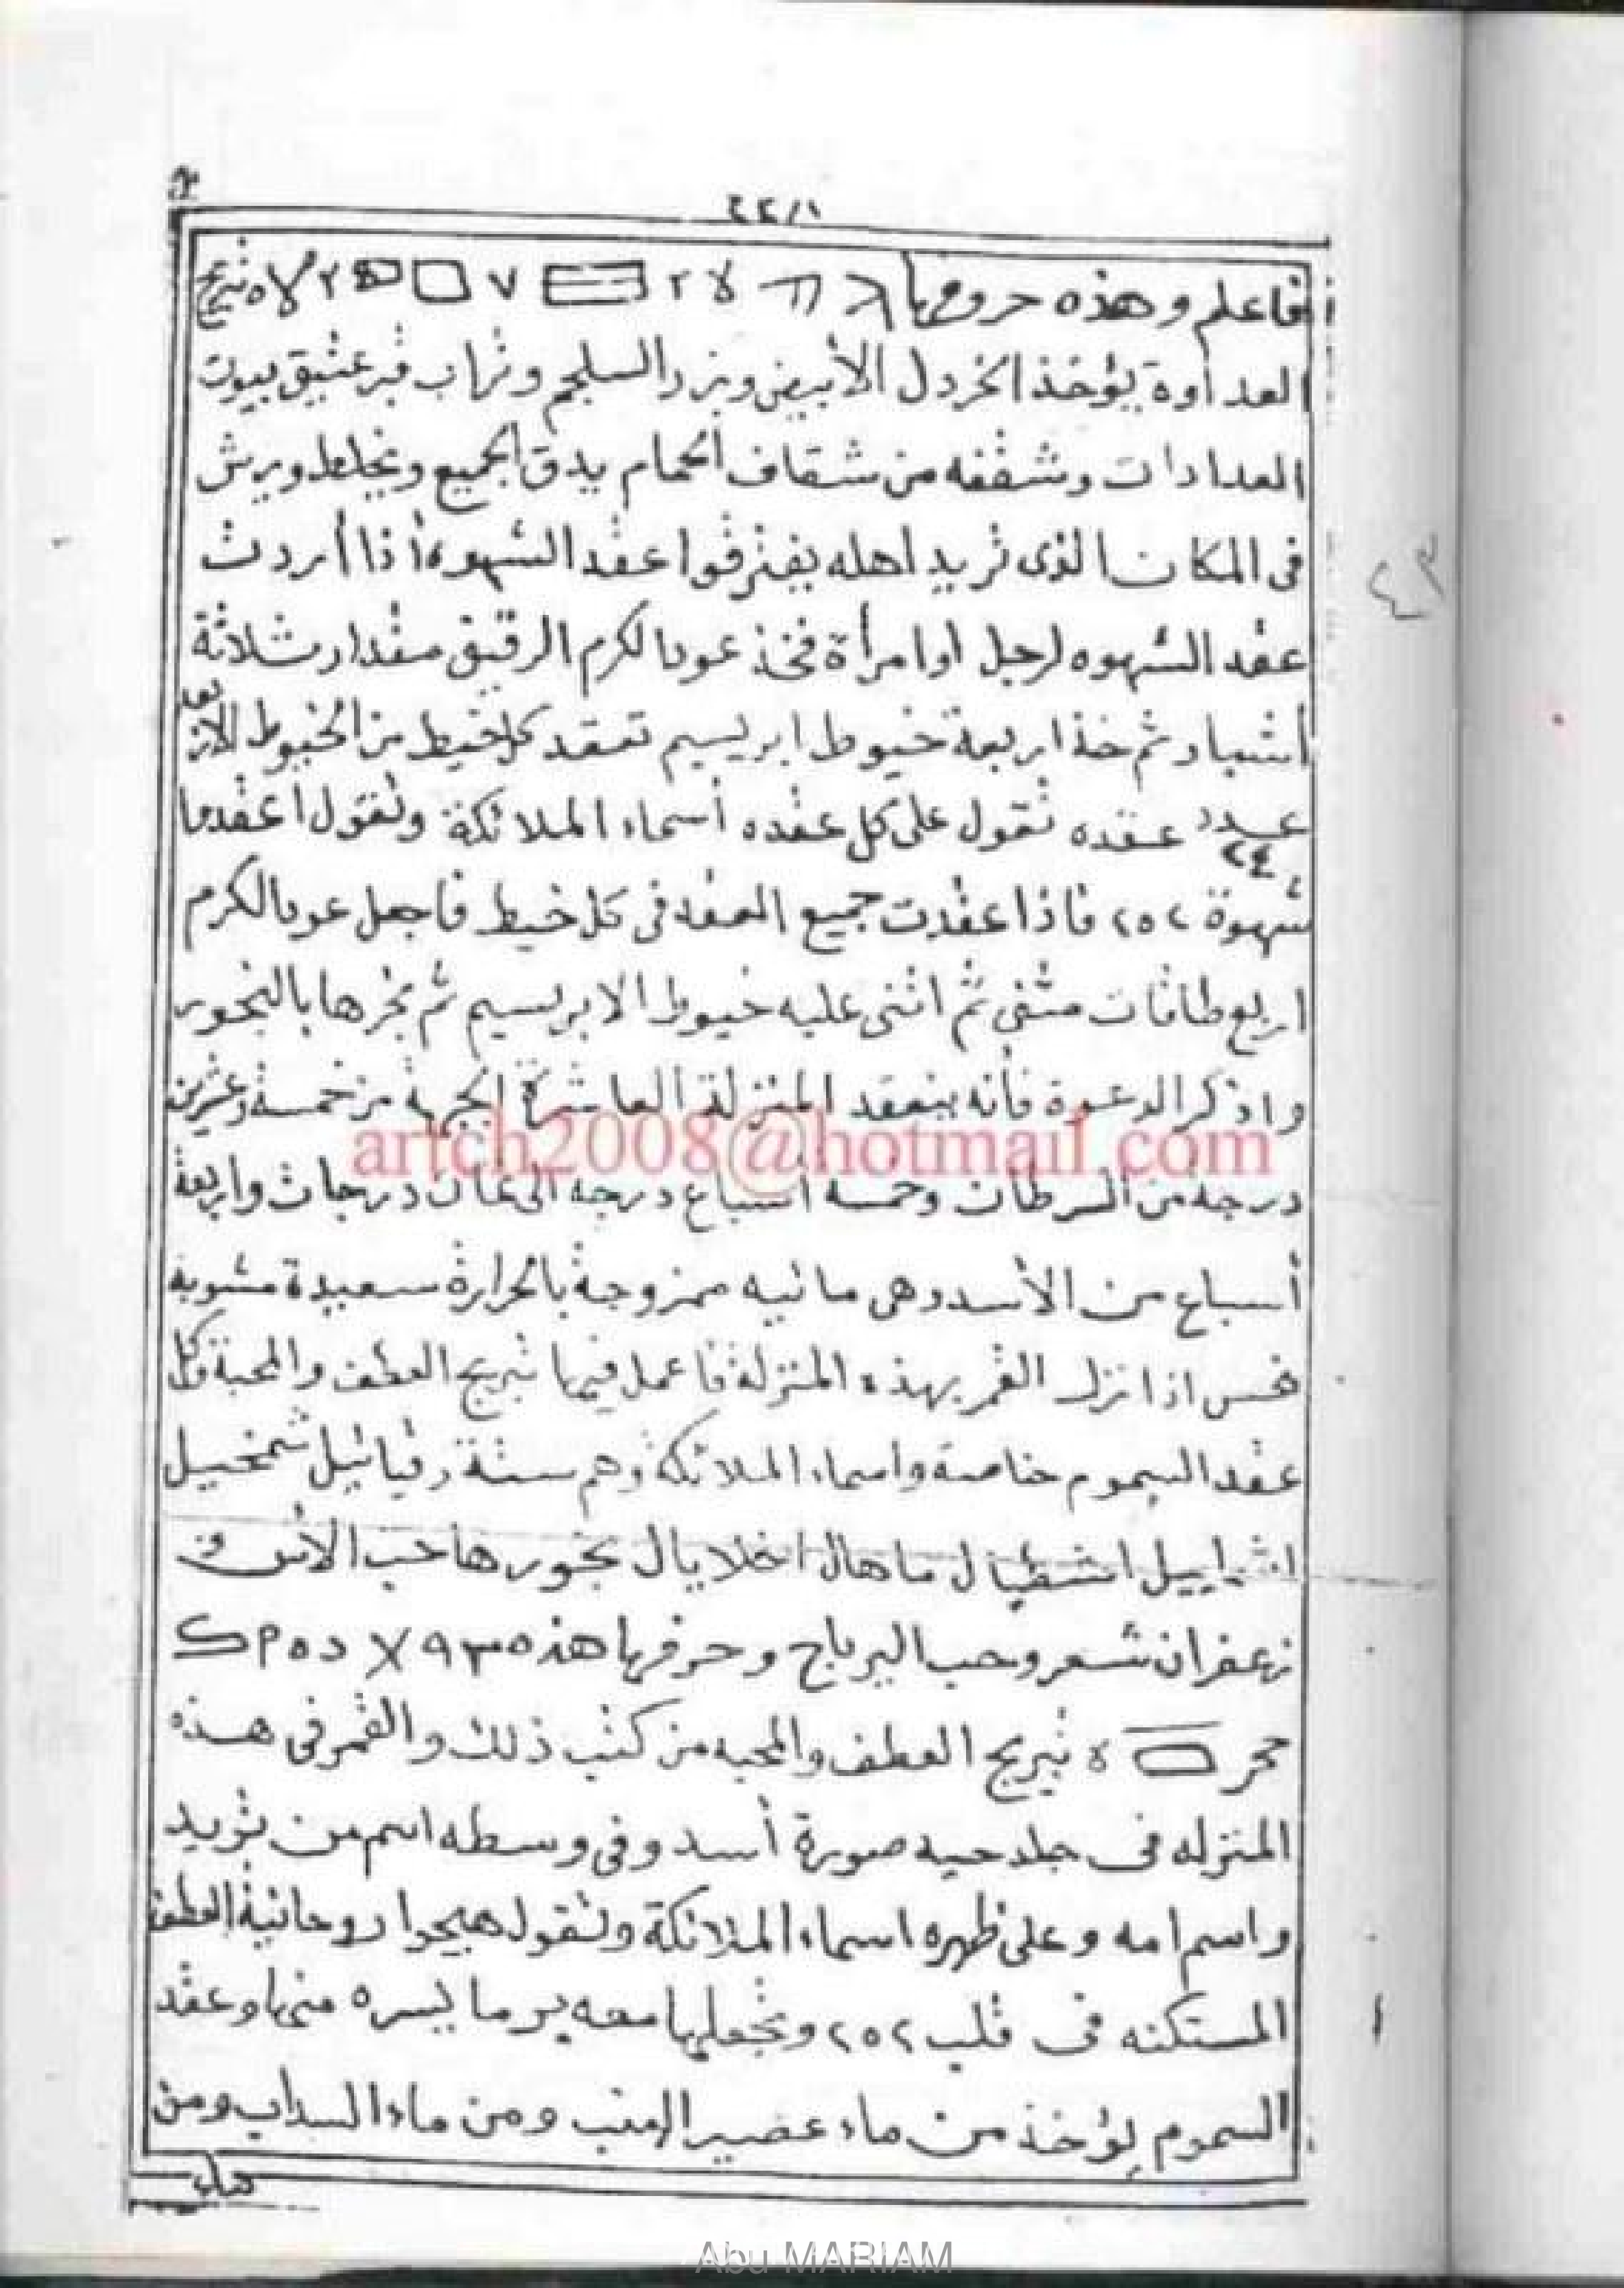 ٢٢/١
فاعلم وهذه حروفها ٧ ٢ ٧ نيرنج
العداوة يؤخذ الخردل الأبيض وبزر السلجم وتراب قبر عتيق بيوت
العدادات وشقفه من شقاف الحمام يدق الجميع ويخلط ويرش
فى المكان الذى تريد اهله يفترقوا عقد الشهوه أذا أردت
عقد الشهوه لرجل اوامرأة فخذ عود الكرم الرقيق مقدار ثلاثة
أشبار ثم خذ اربعة خيوط ابريسيم تعقد كل خيط من الخيوط الأربعه
عدد ٢٤ عقده تقول على كل عقده أسماء الملائكة وتقول أعقدما
شهوة ٢٥٢ فاذا عقدت جميع العقد فى كل خيط فاجعل عود الكرم
اربع طاقات مثنى ثم اثنى عليه خيوط الابريسيم ثم بخرها بالبخور
واذكر الدعوة فأنه ينعقد المنزلة العاشرة الجبهة من خمسة وعشرين
artch2008@hotmail.com
درجة من السرطان وخمسه أسباع درجه الى ثمان درجات واربعة
أسباع من الأسد وهى مائيه ممزوجة بالحرارة سعيدة مشوبة
نحس اذا نزل القمر بهذه المنزلة فاعمل فيها نيريج العطف والمحبة وكل
عقد السموم خاصة واسماء الملائكة وهم ستة رفيائيل شمخيل
اشراييل اشطيال ماهال اخلايال بخورها حب الأس و
زعفران شعر وحب البرباح وحرفها هذه ٩٣
نيريج العطف والمحبه من كتب ذلك والقمر فى هذه
المنزله فى جلد حيه صورة أسد وفى وسطه اسم من تريد
واسم امه وعلى ظهره اسماء الملائكة وتقول هيجوا روحانية العطف
المستكنه فى قلب ٢٥٢ وتجعلها معه ير ما يسره منها وعقد
السموم يؤخذ من ماء عصير العنب ومن ماء السداب ومن
ماء
٤٣
Abu MARIAM